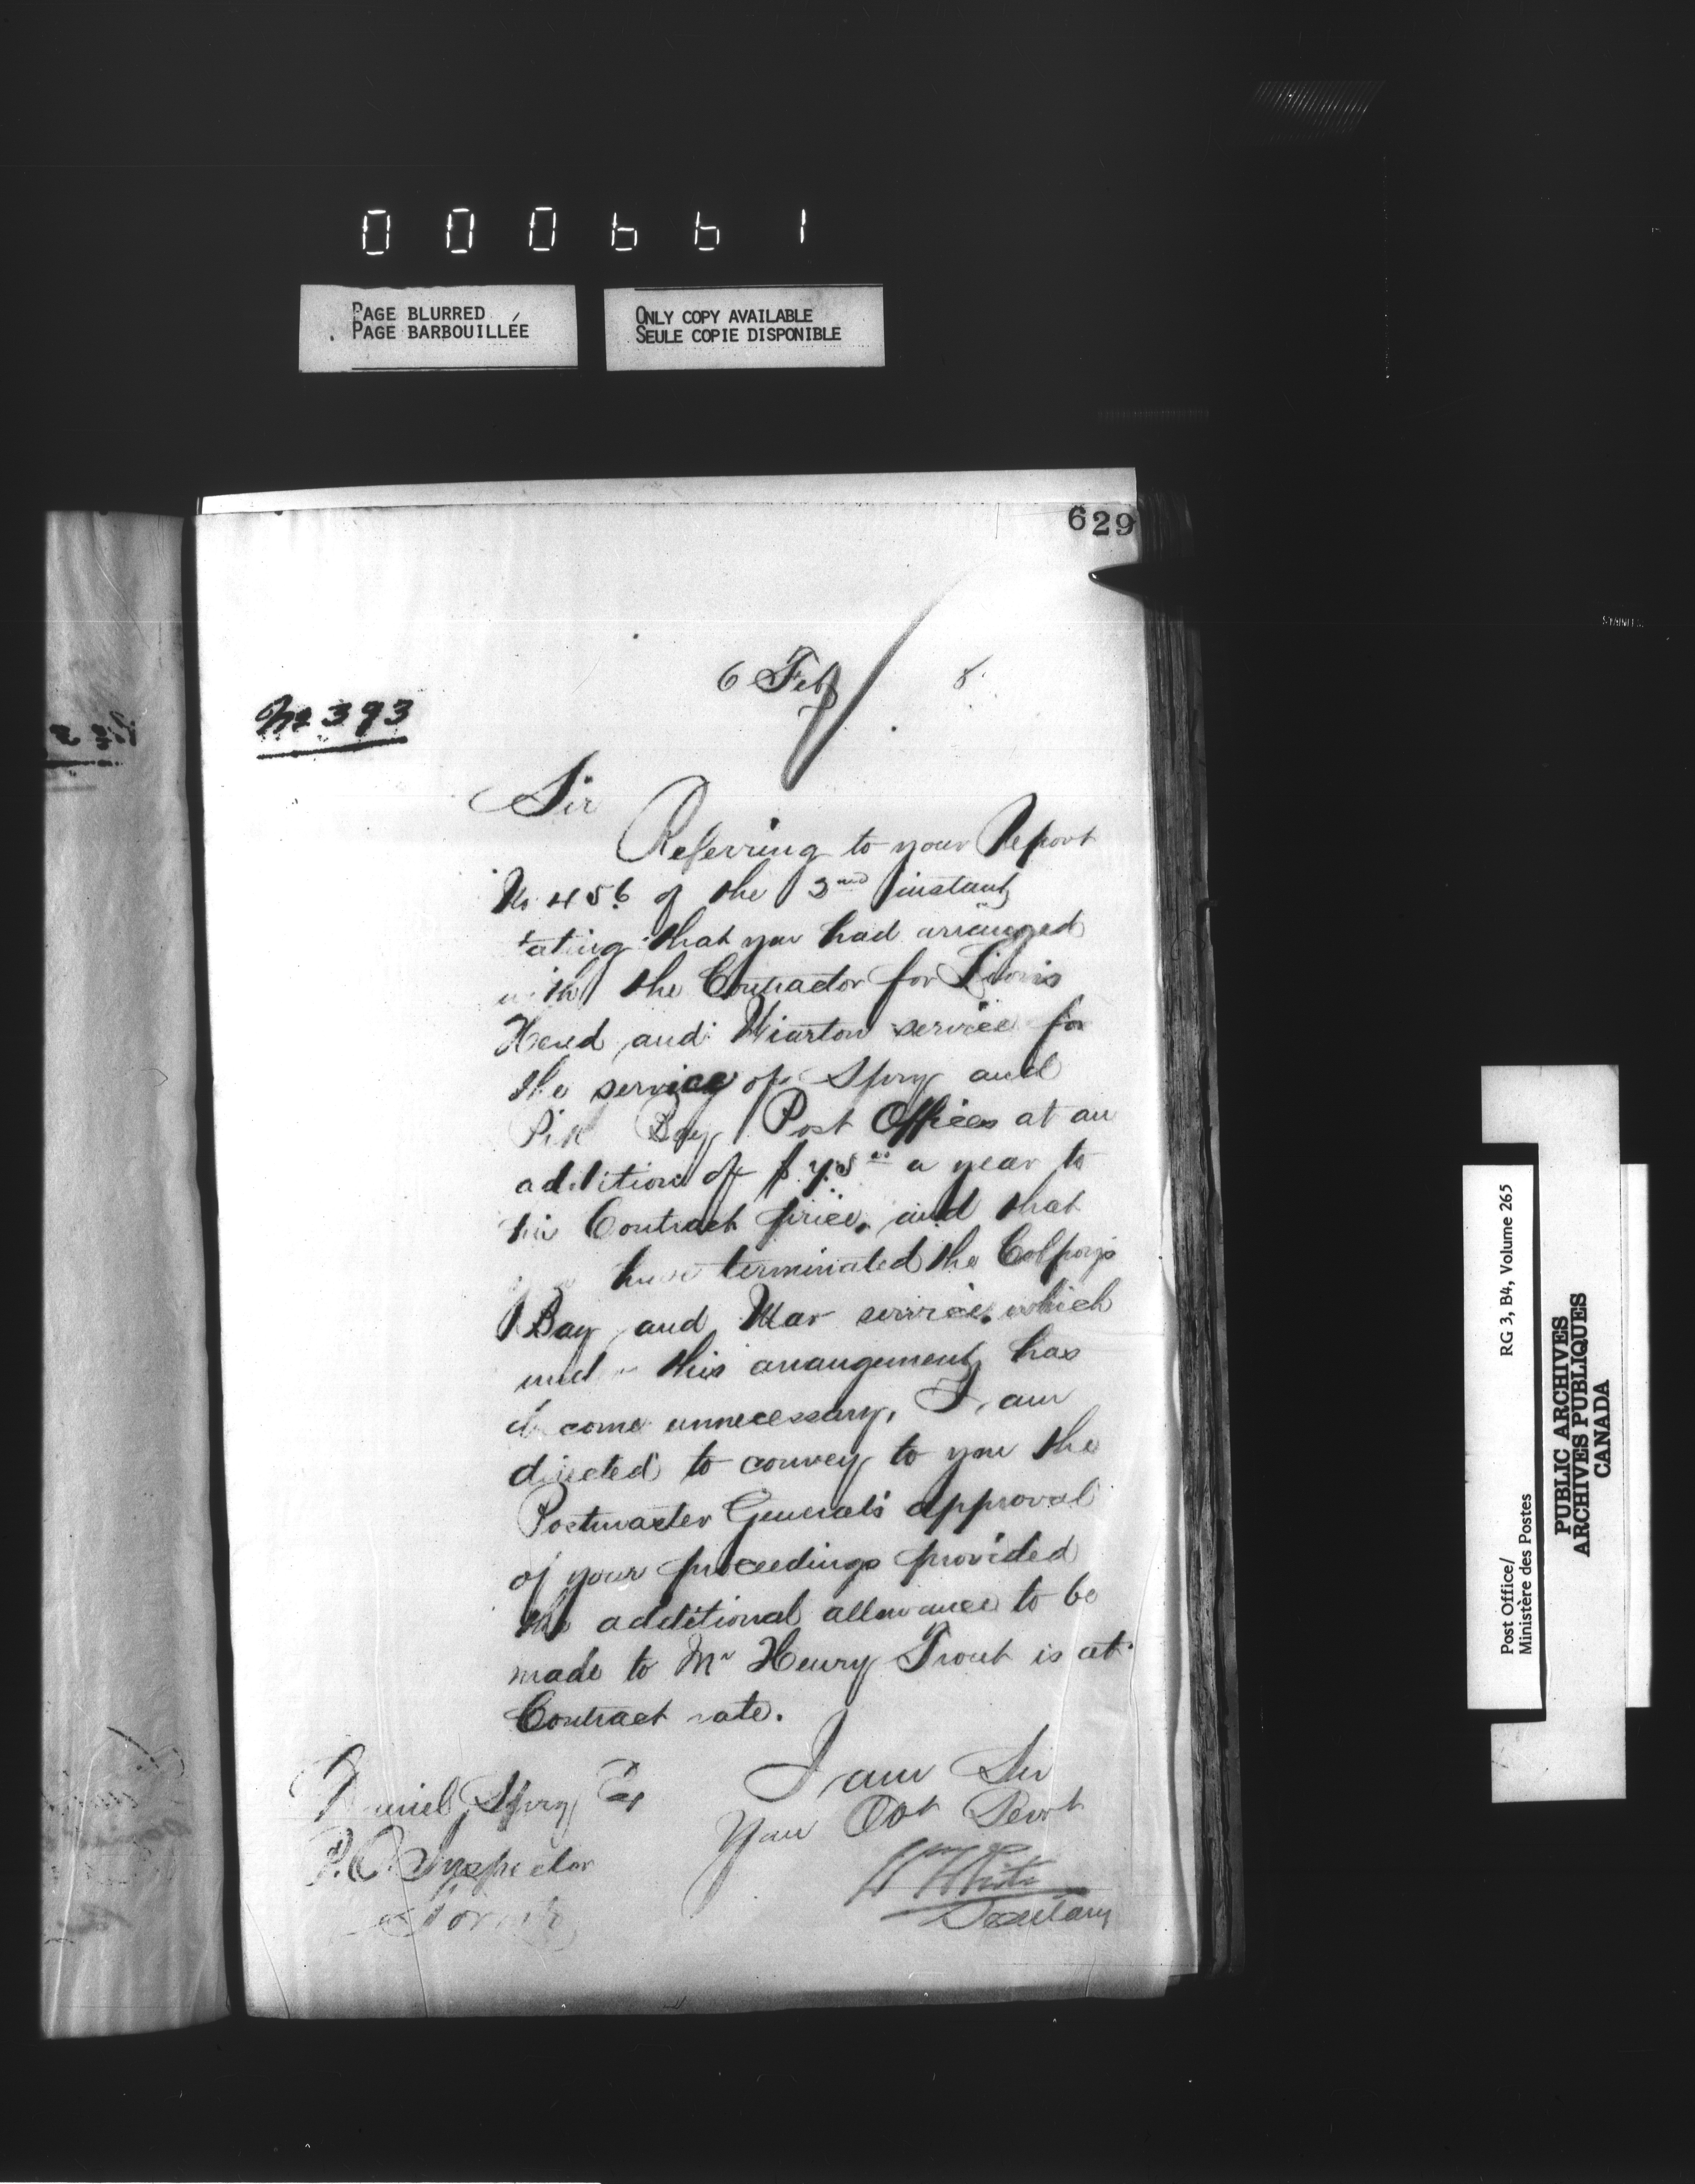 000661
PAGE BLURRED
PAGE BARBOUILLÉE
ONLY COPY AVAILABLE
SEULE COPIE DISPONIBLE
629
6 Feby 8
No 393
Sir
Referring to your Report
No 456 of the 3nd instant
tating that you had arranged
with the Contractor for Lions
Head and Wiarton service for
the service of Spry and
Pik Bay Post Offices at an
addition of $75 00 a year to
his Contract price, and that
have terminated the Colpoys
Bay and Mar service, which
und this arrangement has
become unnecessary, I am
directed to convey to you the
Postmaster General's approval
of your proceedings provided
the additional allowance to be
made to Mr Henry Trout is at
Contract rate.
I am Sir
Your Obt Servt
W White
Secretary
Daniel Spry Esq
P.O. Inspector
Post Office/
Ministère des Postes
RG 3, B4, Volume 265
PUBLIC ARCHIVES
ARCHIVES PUBLIQUES
CANADA